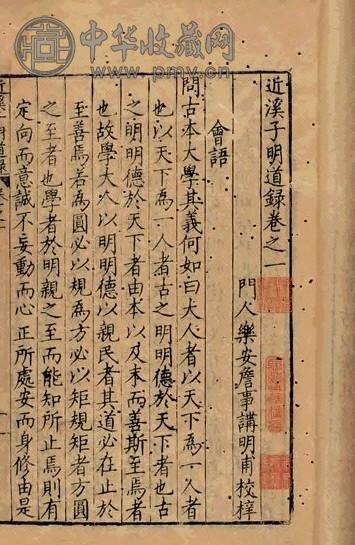 中华收藏网
www.pmv.cn
近溪子明道錄卷之一
門人樂安詹事講明甫校梓
會語
問古本大學其義何如曰大人者以天下為一人者
也以天下為一人者古之明明德於天下者也古
之明明德於天下者由本以及末而善斯至焉者
也故學大人以明明德以親民者其道必在止於
至善焉若為圓必以規為方必以矩規矩者方圓
之至者也學者於明親之至而能知所止焉則有
定向而意誠不妄動而心正所處安而身修由是
明道錄
卷之一